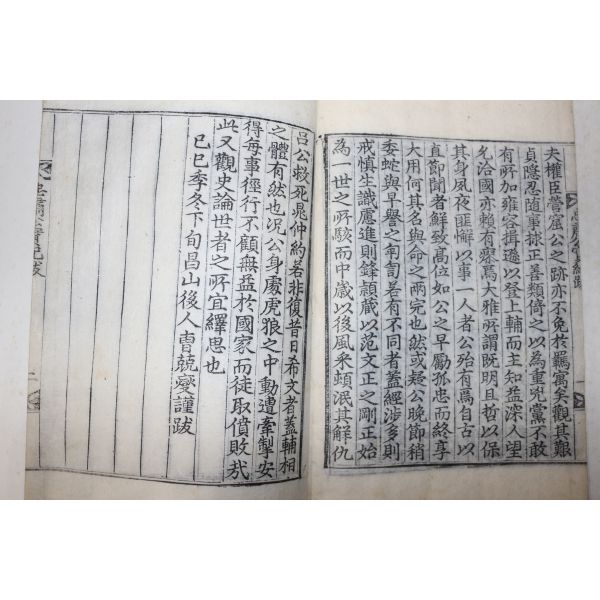 夫權臣營窟公之跡亦不免於羈寓矣觀其艱
貞隱忍隨事捄正善類倚之以為重兇黨不敢
有所加雍容揖遜以登上輔而主知益深人望
允洽國亦賴有瘳焉大雅所謂既明且哲以保
其身夙夜匪懈以事一人者公殆有焉自古以
直節聞者鮮致高位如公之早勵孤忠而終享
大用何其名與命之兩完也然或疑公晚節稍
委蛇與早譽之訇訇若有不同者蓋經涉多則
戒慎生識慮進則鋒穎蔵以范文正之剛正始
為一世之所駭而中歲以後風采頗泯其解仇
呂公救死晁仲約若非復昔日希文者蓋輔相
之體有然也况公身處虎狼之中動遭牽掣安
得每事徑行不顧無益於國家而徒取僨敗哉
此又觀史論世者之所宜繹思也
己巳季冬下旬昌山後人曺兢燮謹跋